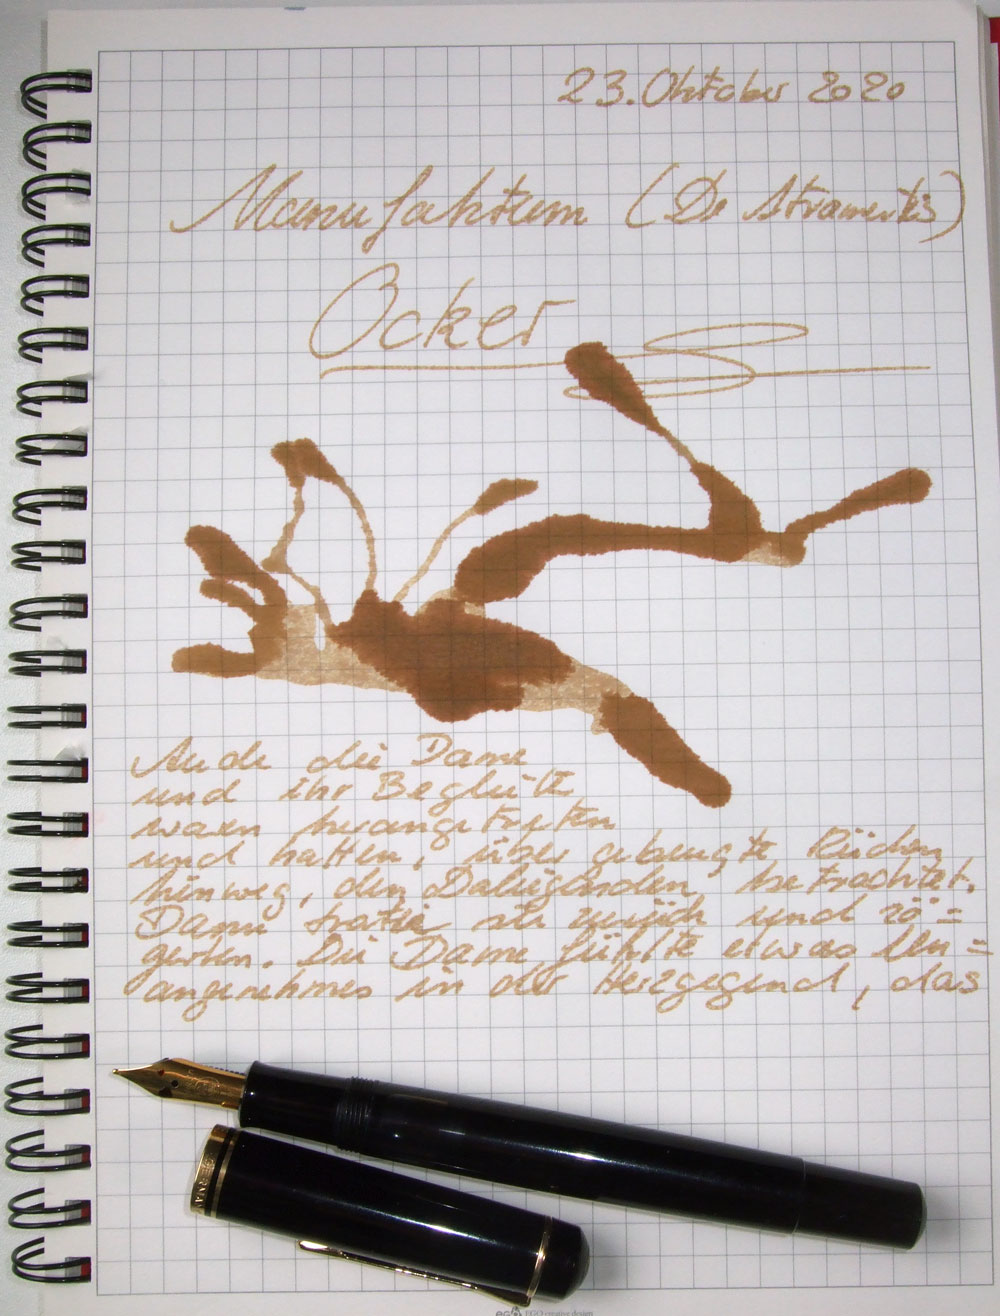 23. Oktober 2020
Manufaktum (De Atramentis)
Ocker
Auch die Dame
und ihr Begleiter
waren herangetreten
und hatten, über gebeugte Rücken
hinweg, den Daliegenden betrachtet.
Dann traten sie zurück und zö=
gerten. Die Dame fühlte etwas Un=
angenehmes in der Herzgegend, das
GERMANY
EGO creative design